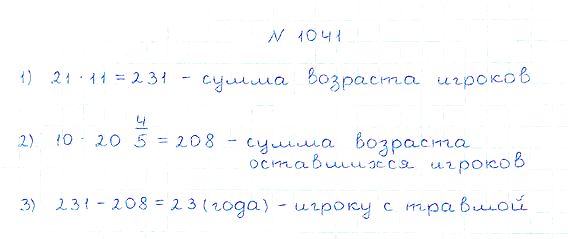 N 1041
1) 21 · 11 = 231 – сумма возраста игроков
2) 10 · 20 4/5 = 208 – сумма возраста
оставшихся игроков
3) 231 – 208 = 23 (года) – игроку с травмой